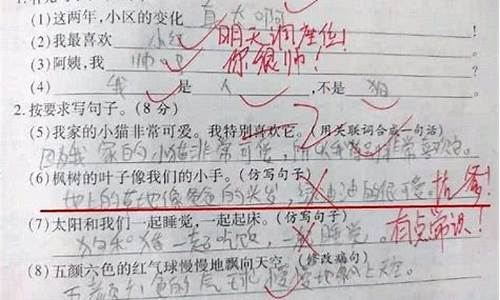 (1)这两年,小区的变化 真大啊
(2)我最喜欢 小红 明天调座位!
(3)阿姨,我 帅吧 你很帅!
(4) 我 是 人 ,不是 狗
2.按要求写句子。(8分)
(5)我家的小猫非常可爱。我特别喜欢它。(用关联词合成一句话)
因为我家的小猫非常可爱,所以我 非常喜欢它。
(6)枫树的叶子像我们的小手。(仿写句子)
地上的草地像爸爸的头发,绿油油的很可爱。
(7)太阳和我们一起睡觉,一起起床。(仿写句子) 有点常识!
狗和猫一起吃饭,一起睡觉。
(8)五颜六色的红气球慢慢地飘向天空。(修改病句)
五颜六色的气球慢慢地飘上天空。